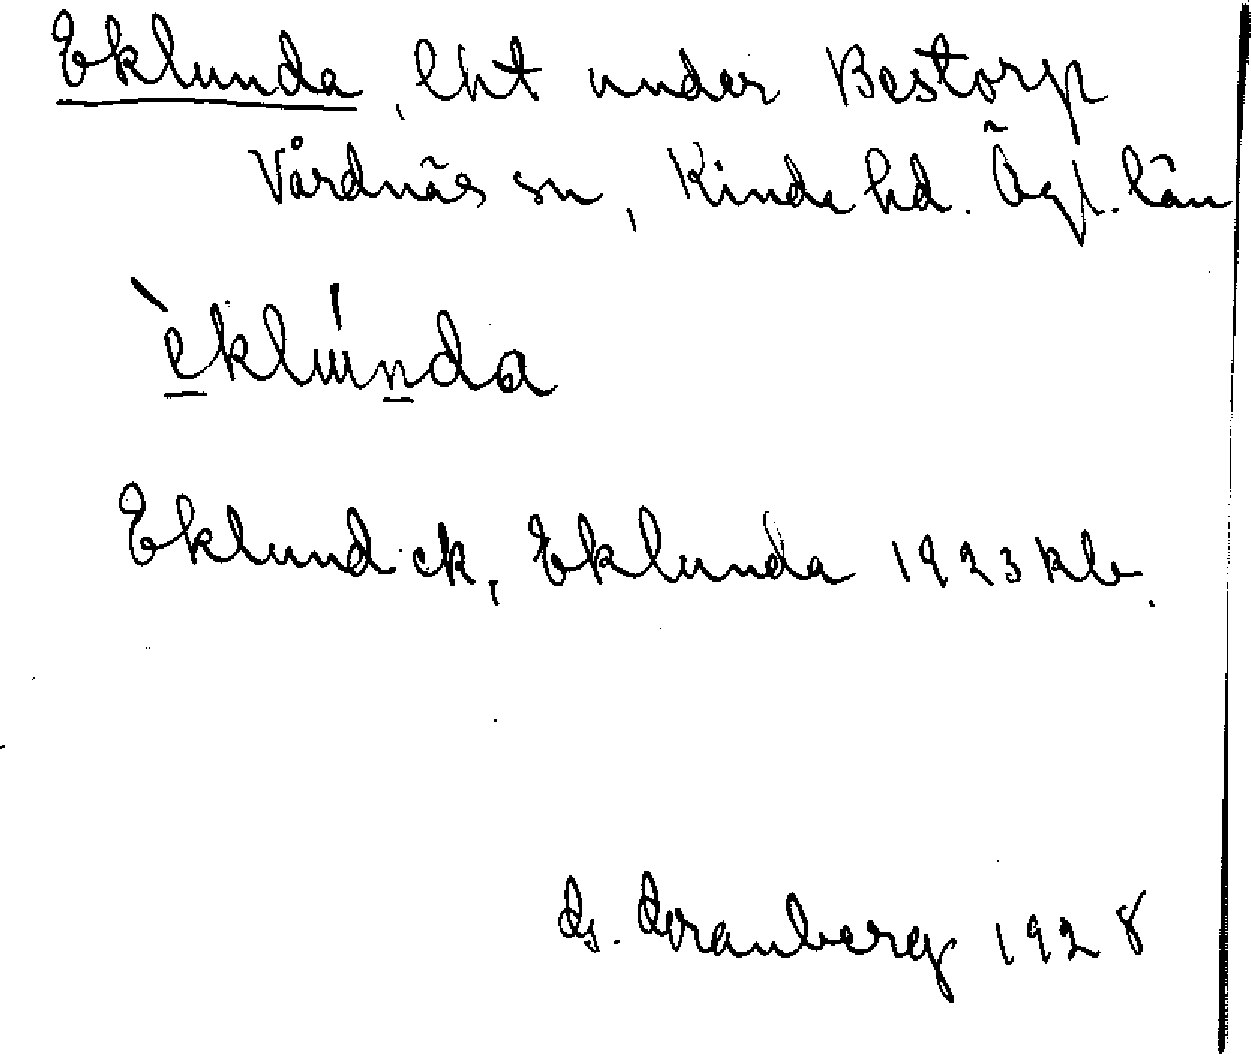 Eklunda, lht under Bestorp
Vårdnäs sn, Kinda hd. Ögl. län
èklúnda
Eklund ek, Eklunda 1923 klb.
G. Granberg 1928